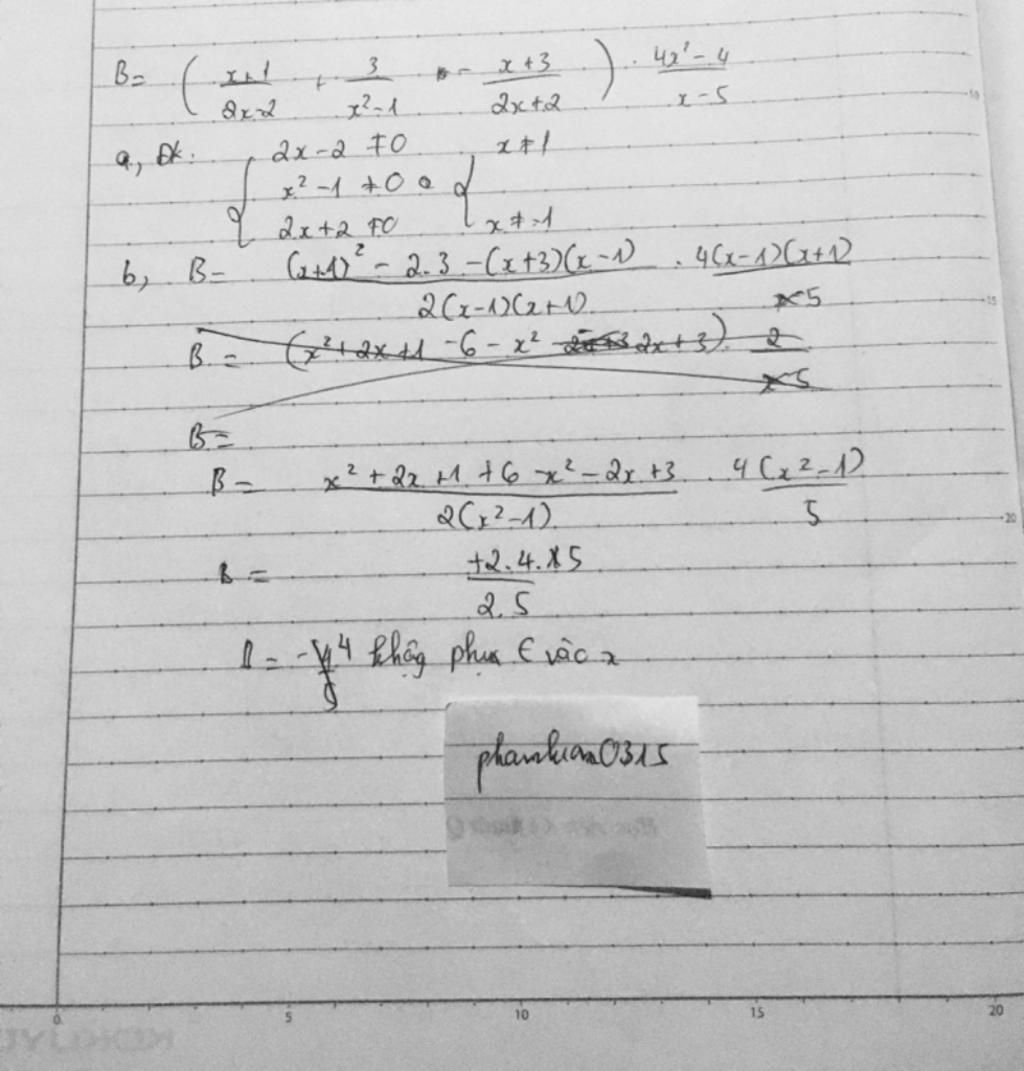 B= ( x+1/2x-2 + 3/x²-1 - x+3/2x+2 ) . 4x²-4/x-5
a, Đk: { 2x-2 ≠0 { x≠1
x²-1 ≠0
2x+2 ≠0 x≠-1
b, B= (x+1)² - 2.3 -(x+3)(x-1)/2(x-1)(x+1) . 4(x-1)(x+1)/x5
B = (x²+2x+1 -6 - x² 2x+3) 2/x5
B=
B= x²+2x+1+6-x²-2x+3/2(x²-1) . 4(x²-1)/5
B = +2.4.x5/2.5
= - 4 không phụ ∈ vào x
0315
0 5 10 15 20
10
15
20